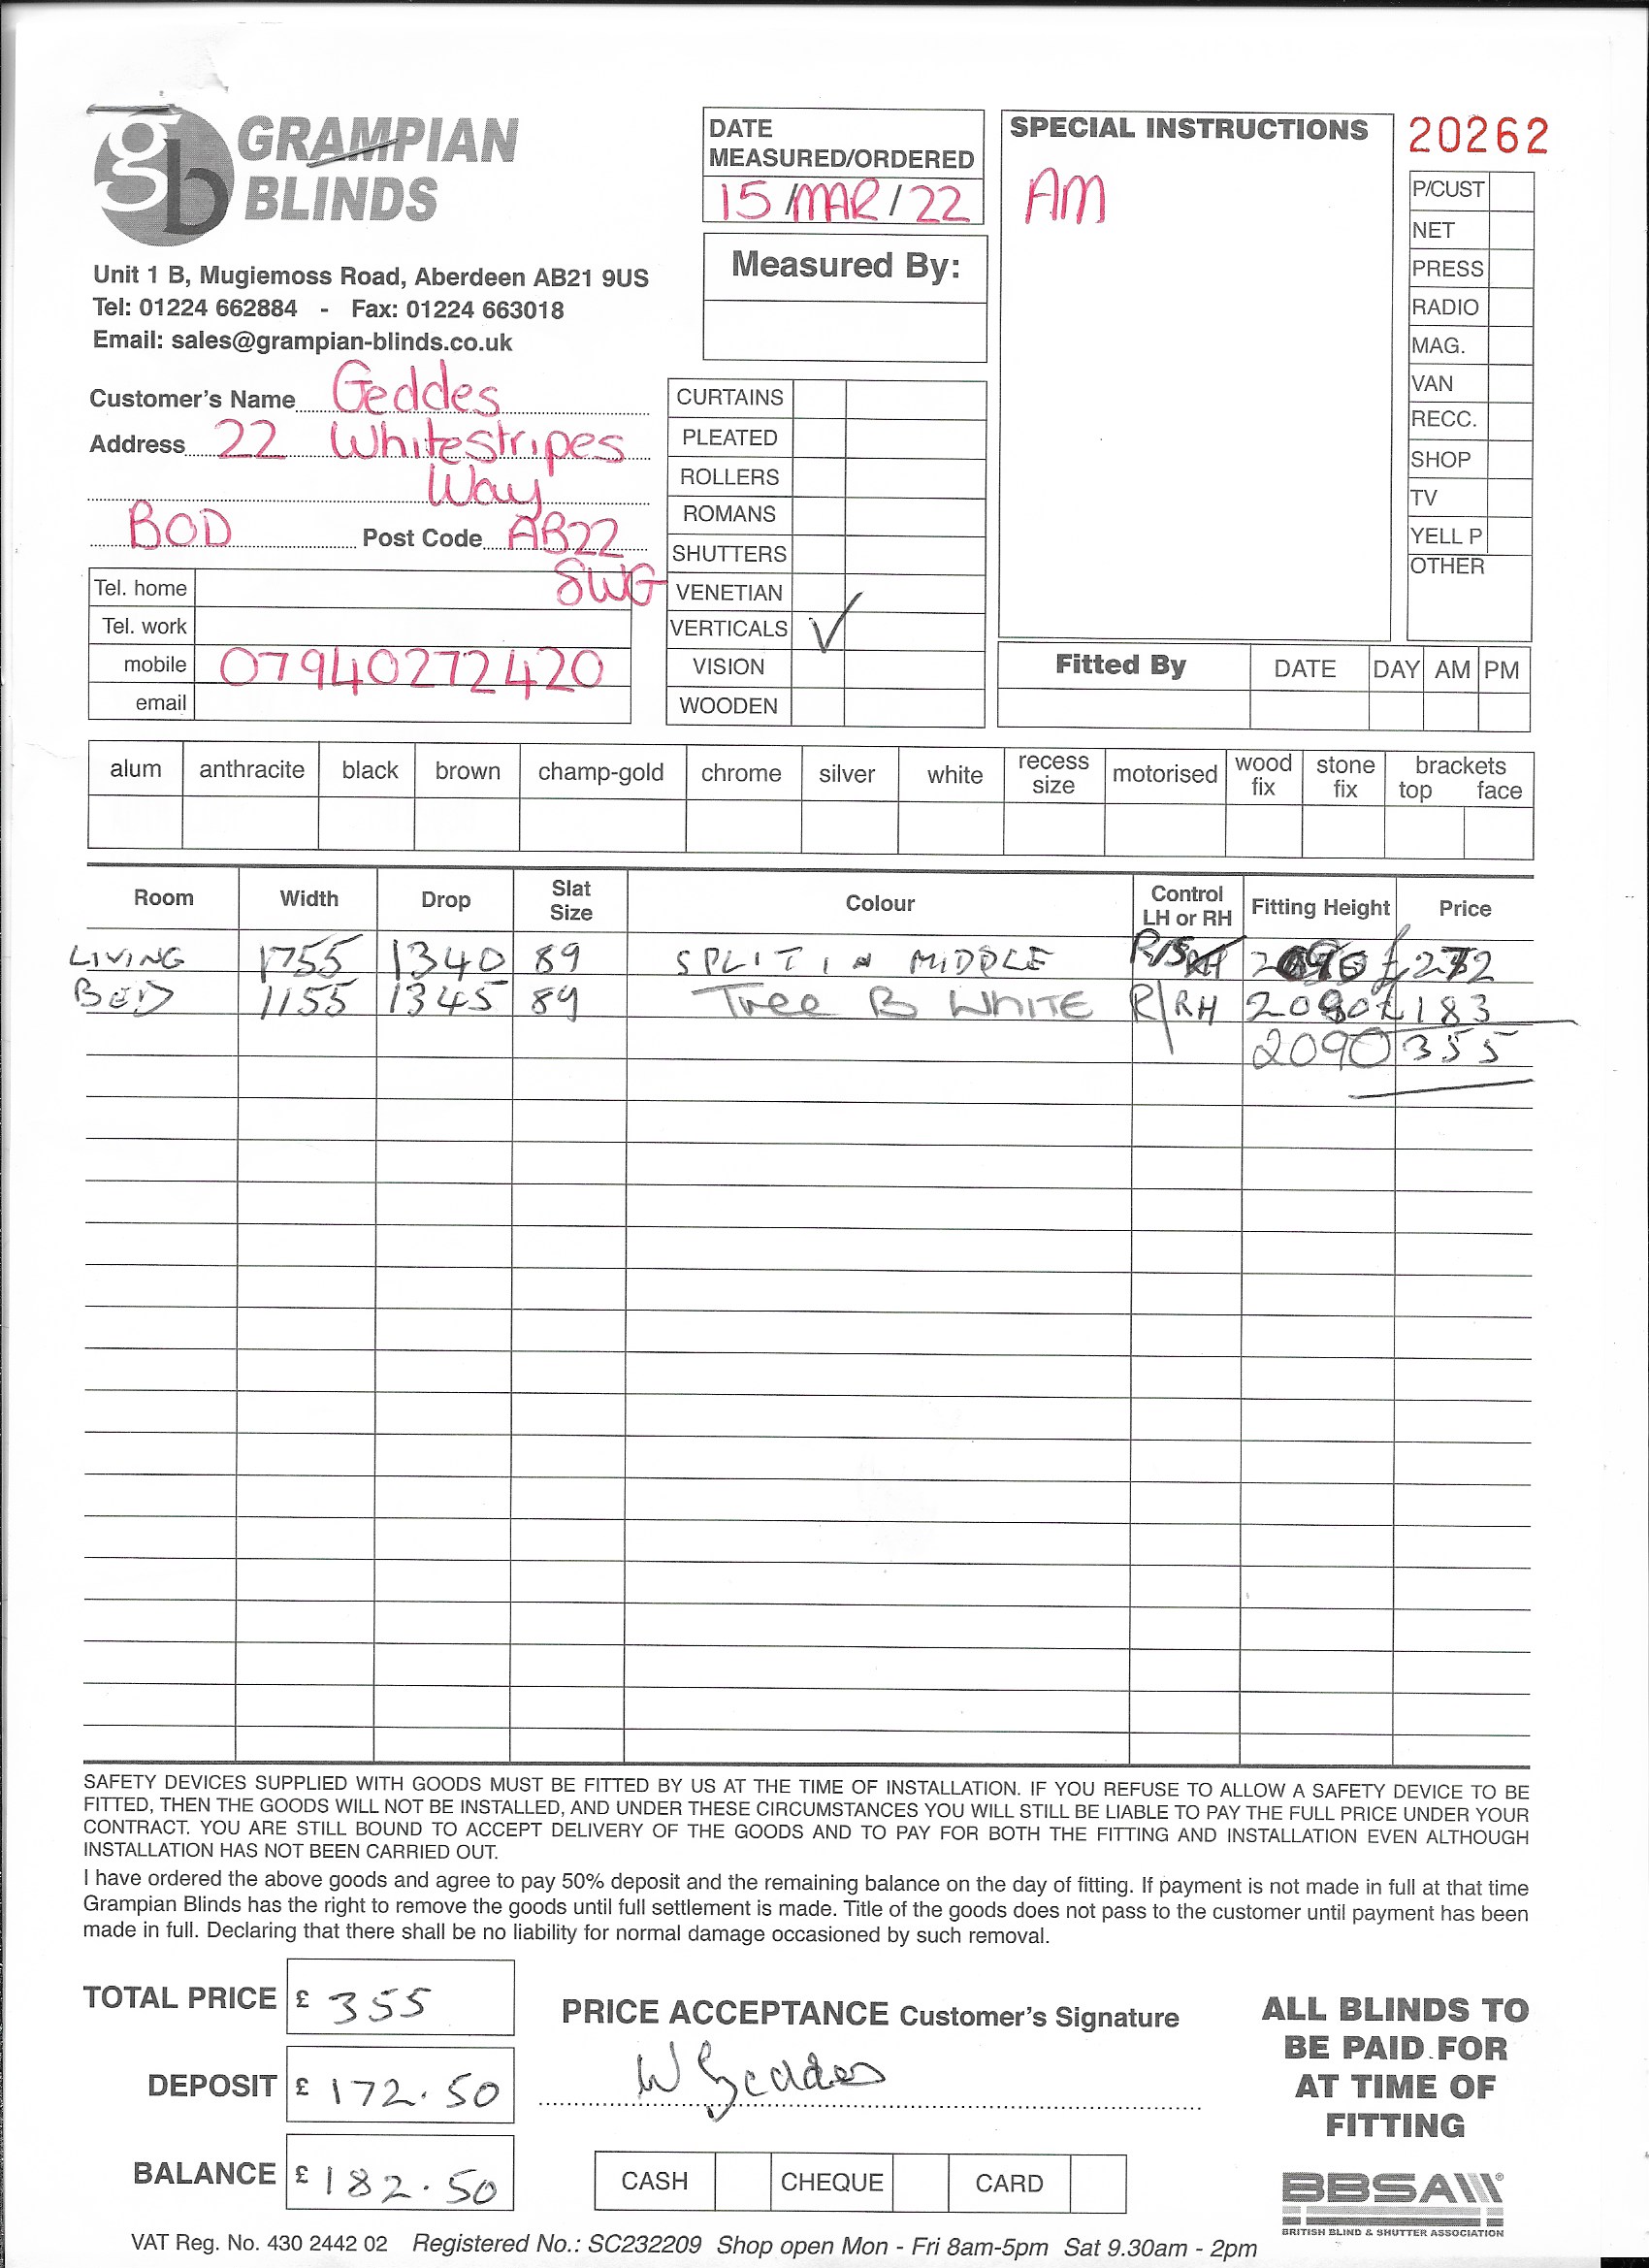 gb GRAMPIAN
BLINDS
Unit 1 B, Mugiemoss Road, Aberdeen AB21 9US
Tel: 01224 662884 - Fax: 01224 663018
Email: sales@grampian-blinds.co.uk
Customer's Name Geddes
Address 22 Whitestripes
Way
BOD Post Code AB22
8WG
Tel. home
Tel. work
mobile 07940272420
email
DATE
MEASURED/ORDERED
15/MAR/22
Measured By:
CURTAINS
PLEATED
ROLLERS
ROMANS
SHUTTERS
VENETIAN
VERTICALS ✓
VISION
WOODEN
SPECIAL INSTRUCTIONS
AM
20262
P/CUST
NET
PRESS
RADIO
MAG.
VAN
RECC.
SHOP
TV
YELL P
OTHER
Fitted By DATE DAY AM PM
alum anthracite black brown champ-gold chrome silver white recess size motorised wood fix stone fix brackets top face
Room Width Drop Slat Size Colour Control LH or RH Fitting Height Price
LIVING 1755 1340 89 SPLIT IN MIDDLE
BED 1155 1345 89 Tree B WHITE R/RH £183
2090 355
SAFETY DEVICES SUPPLIED WITH GOODS MUST BE FITTED BY US AT THE TIME OF INSTALLATION. IF YOU REFUSE TO ALLOW A SAFETY DEVICE TO BE
FITTED, THEN THE GOODS WILL NOT BE INSTALLED, AND UNDER THESE CIRCUMSTANCES YOU WILL STILL BE LIABLE TO PAY THE FULL PRICE UNDER YOUR
CONTRACT. YOU ARE STILL BOUND TO ACCEPT DELIVERY OF THE GOODS AND TO PAY FOR BOTH THE FITTING AND INSTALLATION EVEN ALTHOUGH
INSTALLATION HAS NOT BEEN CARRIED OUT.
I have ordered the above goods and agree to pay 50% deposit and the remaining balance on the day of fitting. If payment is not made in full at that time
Grampian Blinds has the right to remove the goods until full settlement is made. Title of the goods does not pass to the customer until payment has been
made in full. Declaring that there shall be no liability for normal damage occasioned by such removal.
TOTAL PRICE £ 355
DEPOSIT £ 172.50
BALANCE £ 182.50
PRICE ACCEPTANCE Customer's Signature
W Geddes
CASH CHEQUE CARD
ALL BLINDS TO
BE PAID FOR
AT TIME OF
FITTING
BBSA
BRITISH BLIND & SHUTTER ASSOCIATION
VAT Reg. No. 430 2442 02 Registered No.: SC232209 Shop open Mon - Fri 8am-5pm Sat 9.30am - 2pm